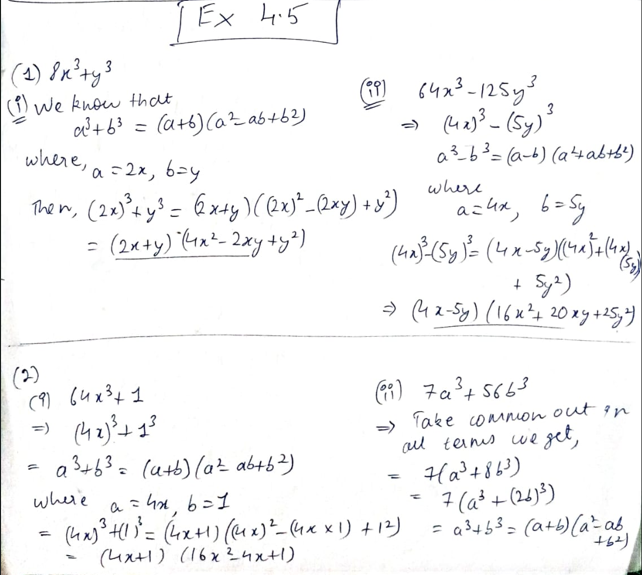 Ex 4.5
(1) 8x³+y³
(i) We know that
a³+b³ = (a+b)(a²-ab+b²)
where, a=2x, b=y
Then, (2x)³+y³ = (2x+y)((2x)²-(2xy)+y²)
= (2x+y) (4x²-2xy+y²)
(ii) 64x³-125y³
⇒ (4x)³-(5y)³
a³-b³=(a-b)(a²+ab+b²)
where
a=4x, b=5y
(4x)³-(5y)³=(4x-5y)((4x)²+(4x)
(5y)
+ 5y²)
⇒ (4x-5y)(16x²+20xy+25y²)
(2)
(i) 64x³+1
⇒ (4x)³+1³
= a³+b³ = (a+b)(a²-ab+b²)
where a=4x, b=1
= (4x)³+(1)³ = (4x+1)((4x)²-(4x×1)+1²)
= (4x+1) (16x²-4x+1)
(ii) 7a³+56b³
⇒ Take common out in
all terms we get,
= 7(a³+8b³)
= 7(a³+(2b)³)
= a³+b³ = (a+b)(a²-ab
+b²)